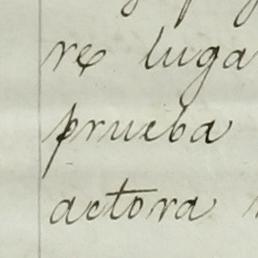 re luga
prueba
actora